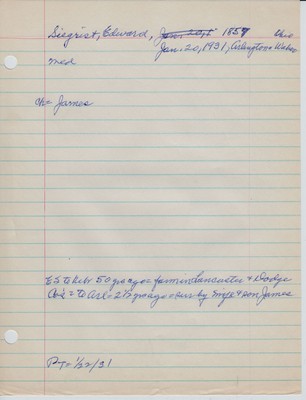 Siegrist, Edward, Jan. 20, 1 1857 Ohio
Jan. 20, 1931, Arlington Wabco
med
Ch= James
ES to Nebr 50 yrs ago = farmin Lancaster & Dodge
Co's = to Arl = 2½ yrs ago = surv by wife & son James
PT= 1/22/31